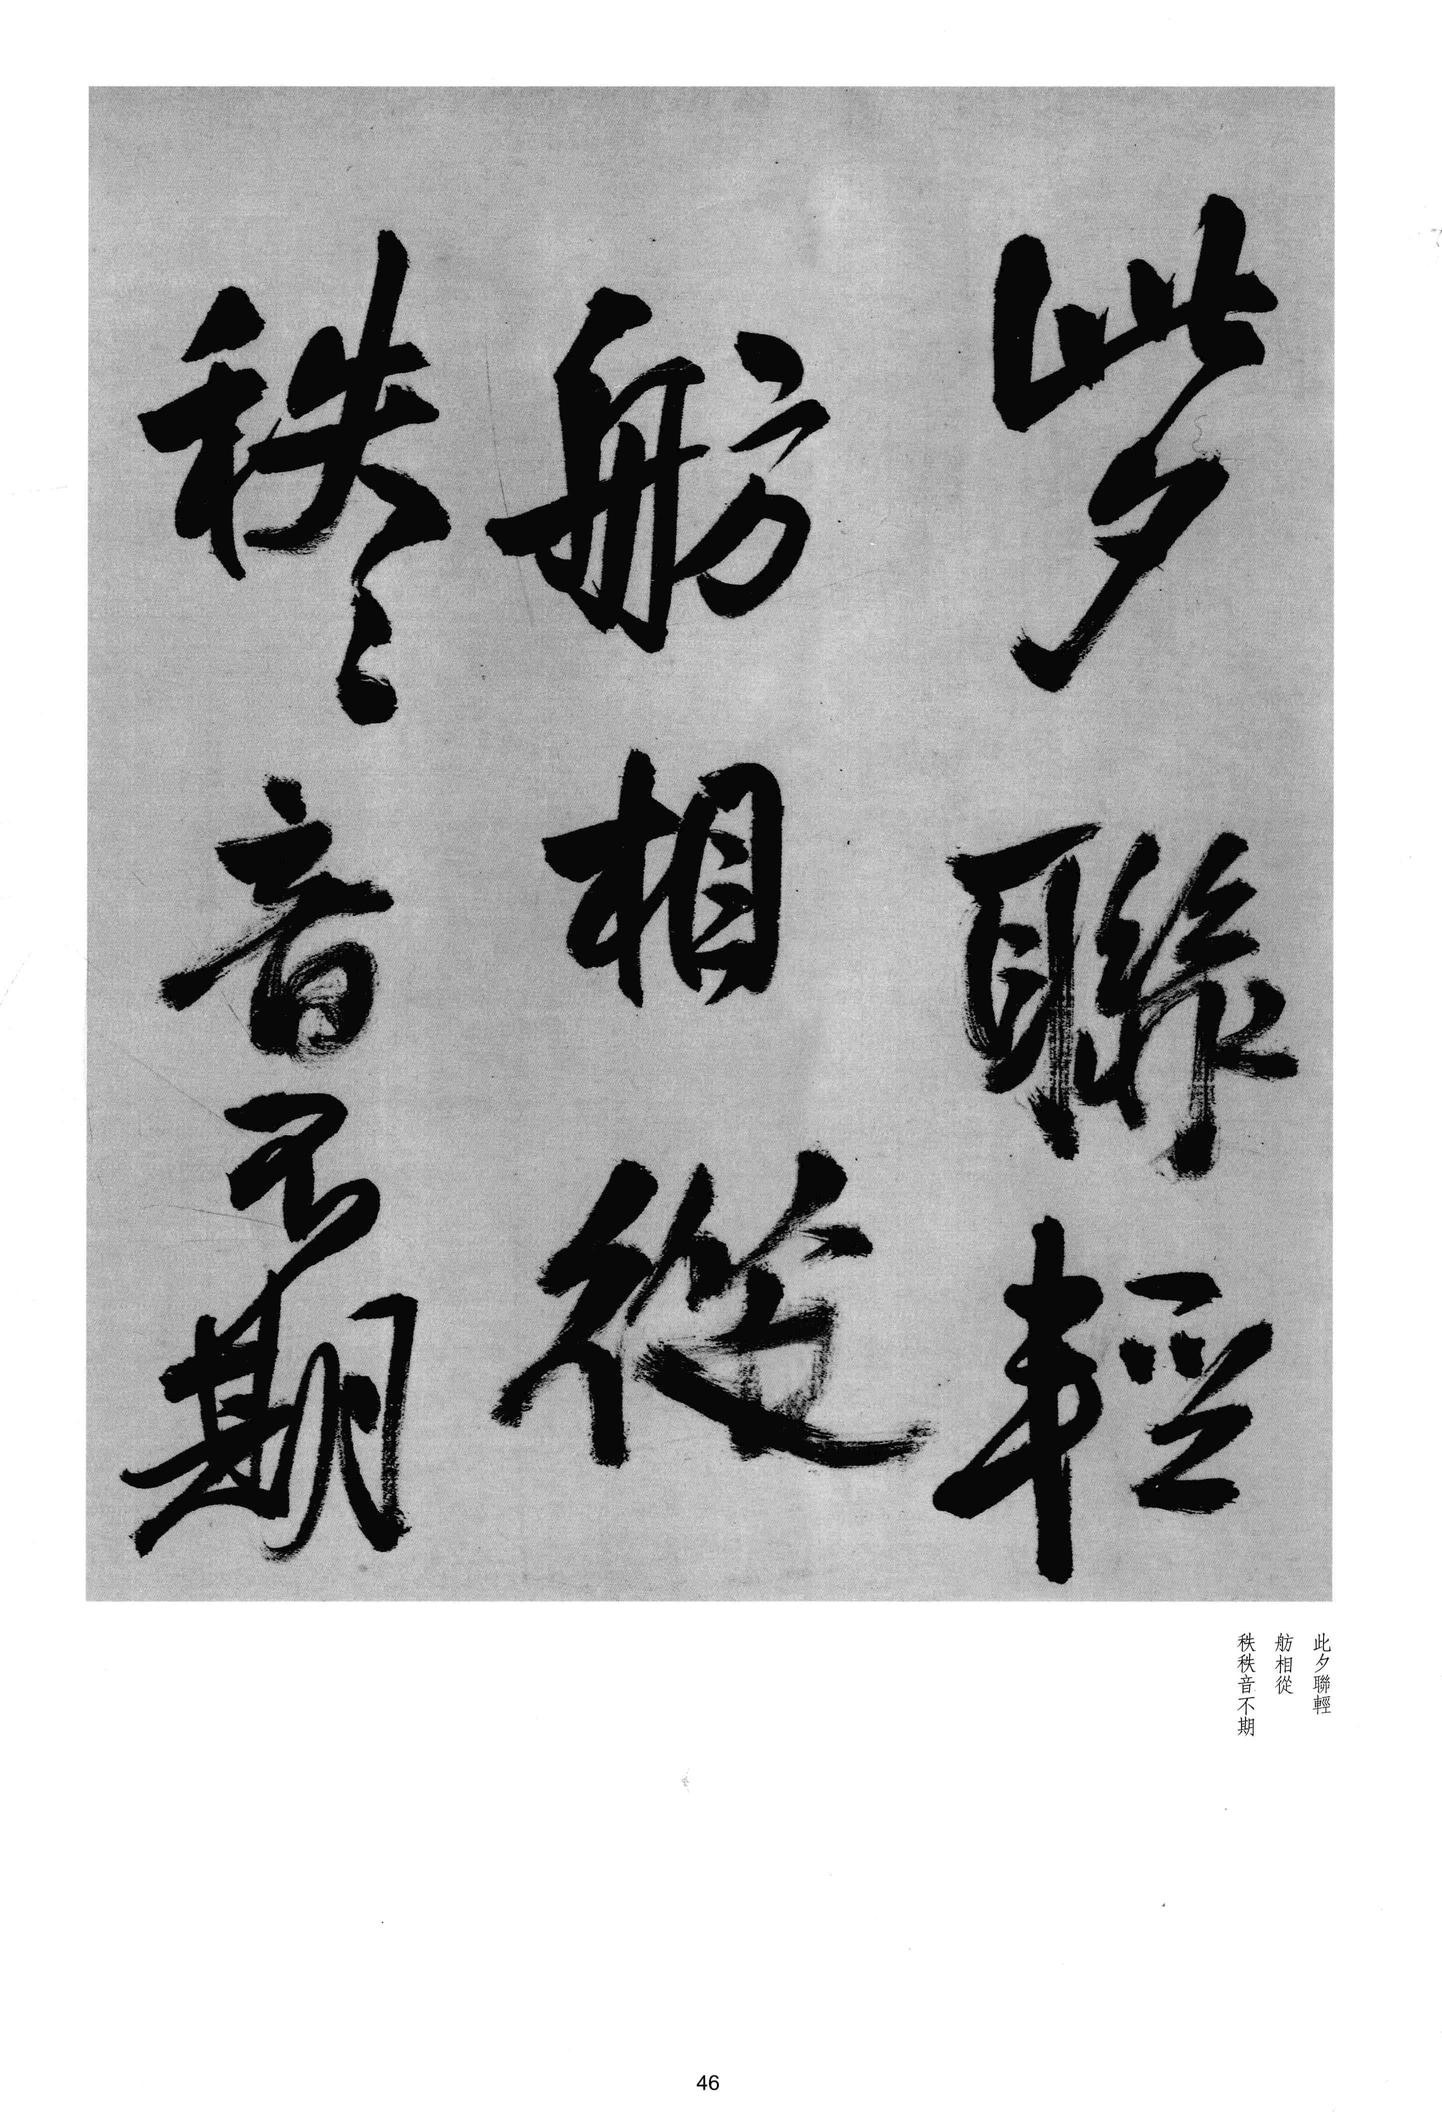 此夕聯輕
舫相從
秩〻音不期
此夕聯輕
舫相從
秩秩音不期
46